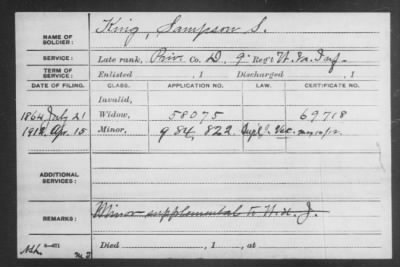 NAME OF SOLDIER: King, Sampson S.
SERVICE: Late rank, Priv. Co. D, 9" Reg't W. Va. Inf.
TERM OF SERVICE: Enlisted , 1 Discharged , 1
DATE OF FILING. CLASS. APPLICATION NO. LAW. CERTIFICATE NO.
Invalid,
1864 July 21 Widow, 58075 69718
1912 Apr. 15 Minor, 984,822
ADDITIONAL SERVICES:
REMARKS: Minor supplemental to
Died , 1 , at